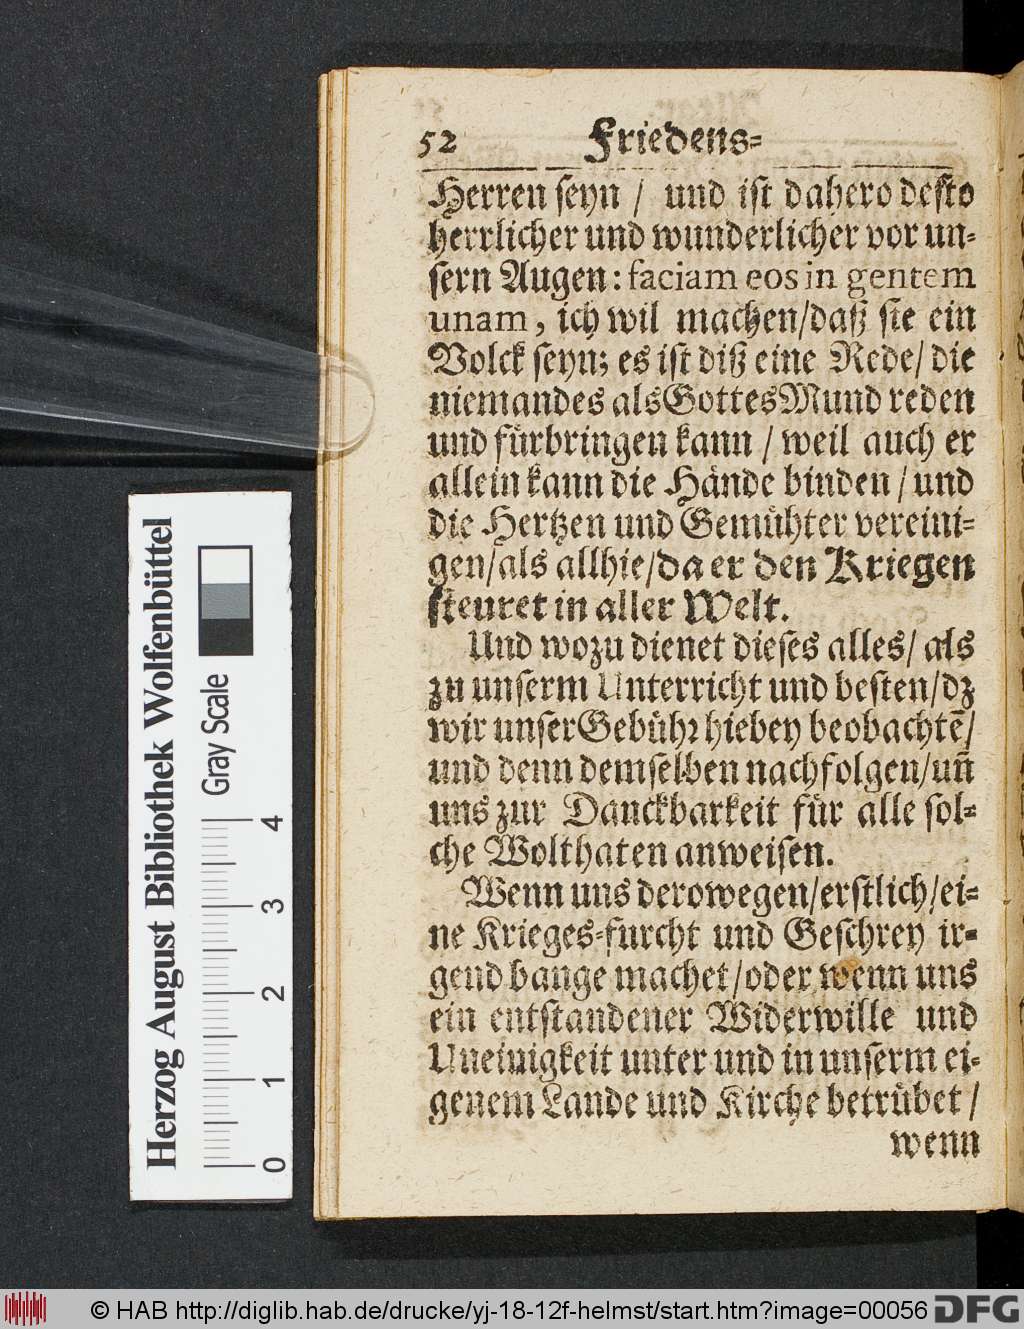 52 Friedens-
Herren ſeyn / und iſt dahero deſto
herrlicher und wunderlicher vor un-
ſern Augen: faciam eos in gentem
unam, ich wil machen/daß ſie ein
Volck ſeyn; es iſt diß eine Rede/ die
niemandes als Gottes Mund reden
und fürbringen kann / weil auch er
allein kann die Hände binden / und
die Hertzen und Gemühter vereini-
gen/als allhie/da er den Kriegen
ſteuret in aller Welt.
Und wozu dienet dieſes alles/ als
zu unſerm Unterricht und beſten/dz
wir unſer Gebühr hiebey beobachtē/
und denn demſelben nachfolgen/un̄
uns zur Danckbarkeit für alle ſol-
che Wolthaten anweiſen.
Wenn uns derowegen/erſtlich/ei-
ne Krieges-furcht und Geſchrey ir-
gend bange machet/oder wenn uns
ein entſtandener Widerwille und
Uneinigkeit unter und in unſerm ei-
genem Lande und Kirche betrübet /
wenn
Herzog August Bibliothek Wolfenbüttel
Gray Scale
0 1 2 3 4
© HAB http://diglib.hab.de/drucke/yj-18-12f-helmst/start.htm?image=00056 DFG